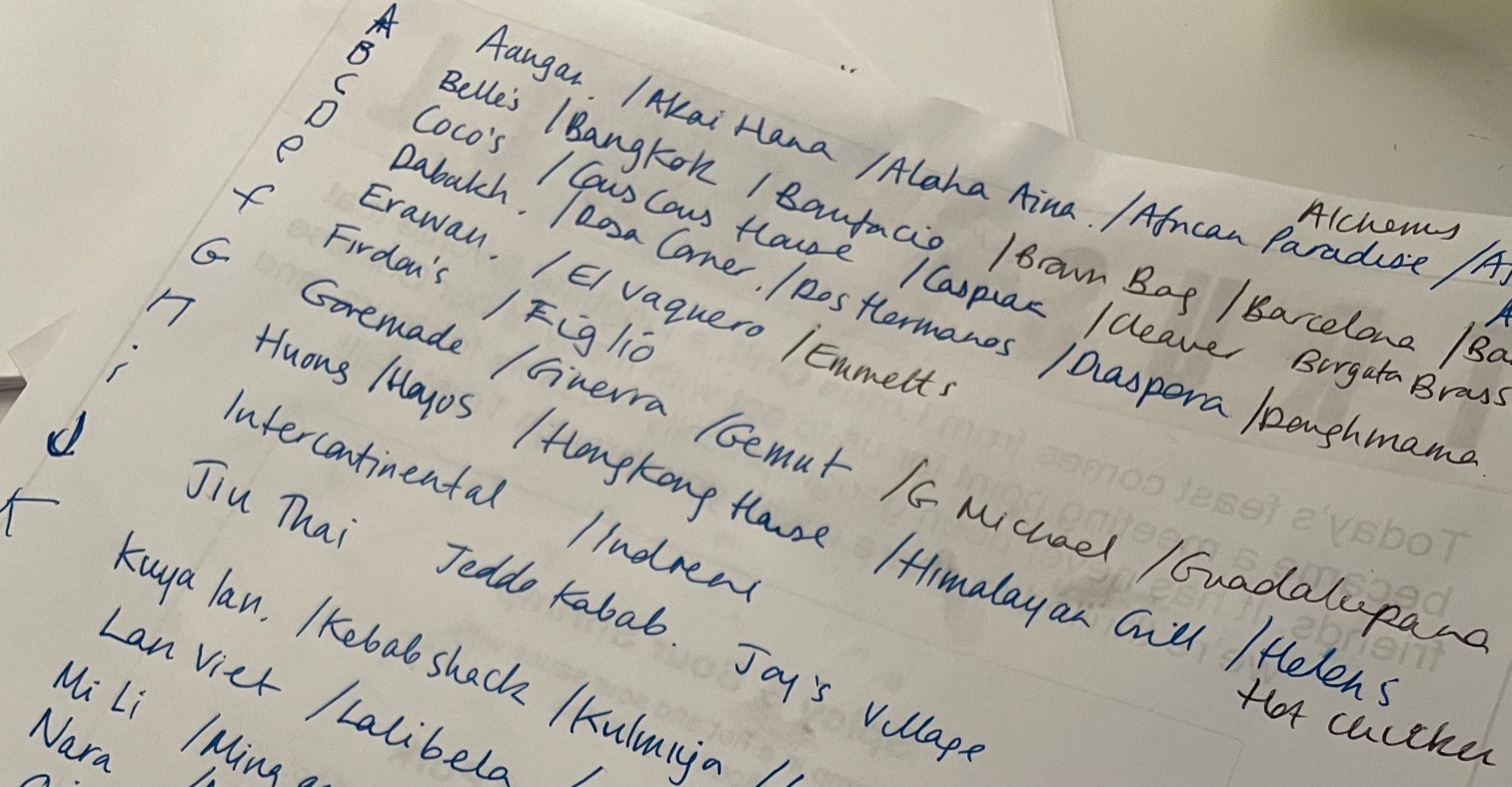 A Aangan. /Akai Hana /Alaha Aina. /African Paradise /A
Alchemy
B Belle's /Bangkok /Bonifacio /Brown Bag /Barcelona /Ba
Borgata Brass
C Coco's /Cous Cous House /Caspian /Cleaver
D Dabakh. /Dosa Corner. /Dos Hermanos /Diaspora /Doughmama.
e Erawan. /El vaquero /Emmetts
f Firdou's /Figlio
G Goremade /Ginerra /Gemut /G Michael /Guadalupana
H Huong /Hoyos /HongKong House /Himalayan Grill /Helen's
Hot Chicken
i Intercontinental /Indreni
J Jiu Thai Jeddo Kabab. Joy's Village
K Kuya Ian. /Kebab shack /Kulmiya /
Lan Viet /Lalibela /
Mi Li /Ming
Nara
Today's feast comes from
became a meeting point for
friends. It has never